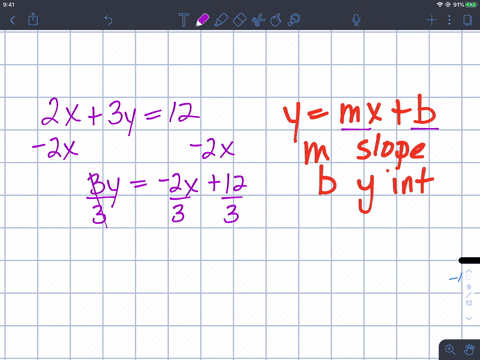 9:41
91%
2x + 3y = 12
-2x -2x
3y = -2x + 12
3 3 3
y = mx + b
m slope
b y int
9
12